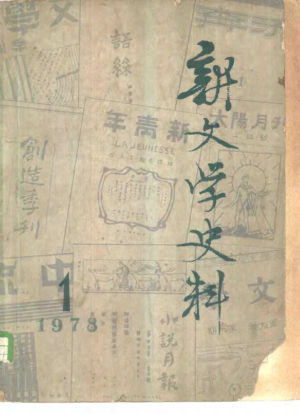 新文学史料
1
1978
文學
語絲
新青年
LA JEUNESSE
太陽月刊
創造季刊
中流
文
小説月報